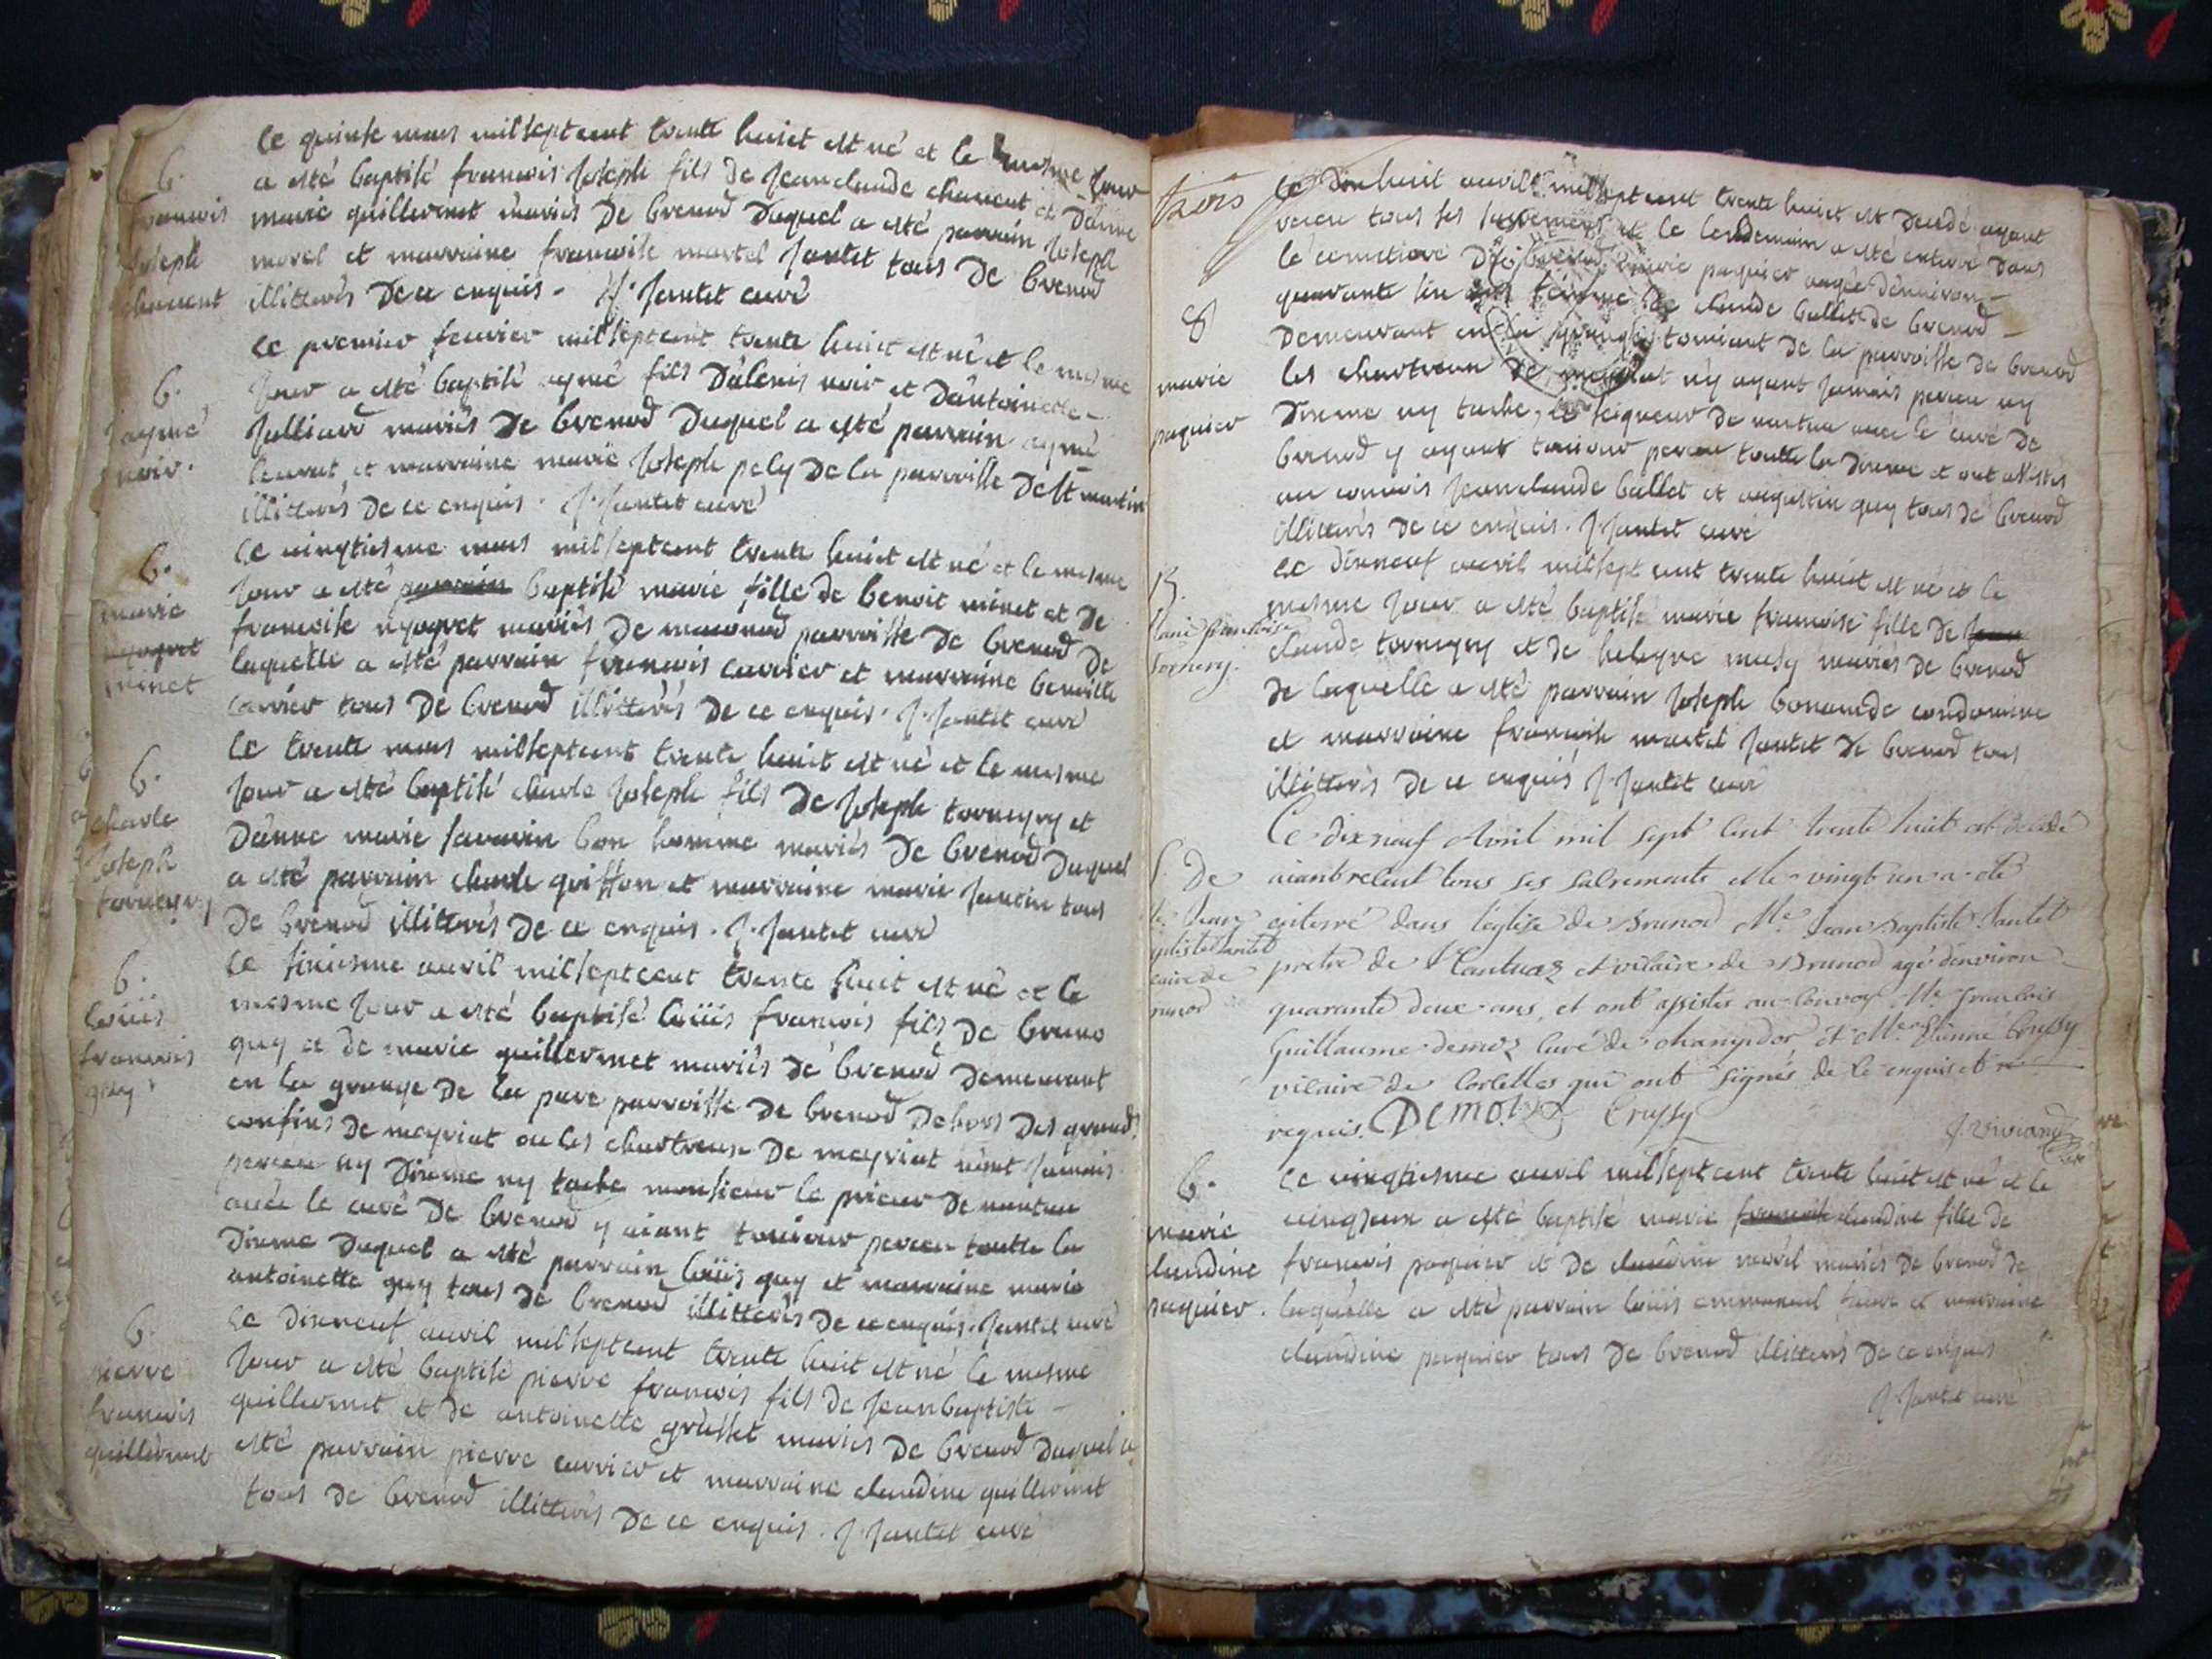 b.
francois
joseph
chavent
le quinse mars mil sept cent trente huict est né et le mesme jour
a esté baptisé francois joseph fils de jean claude chavent et d'anne
marie guillermet mariés de brenod duquel a esté parrain joseph
morel et marraine francoise martel jantet tous de brenod
illitterés de ce enquis. J. jantet curé
b.
aymé
noir.
le premier feuvier mil sept cent trente huict est né et le mesme
jour a esté baptisé aymé fils d'alexis noir et d'antoinette
julliard mariés de brenod duquel a esté parrain aymé
et marraine marie joseph pely de la parroisse de st martin
illitterés de ce enquis. J. jantet curé
b.
marie
nyogret
minet
le vingtiesme mars mil sept cent trente huict est né et le mesme
jour a esté parrain baptisé marie fille de benoit minet et de
francoise nyogret mariés de maconod parroisse de brenod de
laquelle a esté parrain francois carrier et marraine benoitte
carrier tous de brenod illitterés de ce enquis. J. jantet curé
b.
charle
joseph
torneyry
le trente mars mil sept cent trente huict est né et le mesme
jour a esté baptisé charle joseph fils de joseph torneyry et
d'anne marie savarin bon homme mariés de brenod duquel
a esté parrain charle goiffon et marraine marie jantin tous
de brenod illitterés de ce enquis. J. jantet curé
b.
loüis
francois
guy
le sixiesme avvil mil sept cent trente huict est né et le
mesme jour a esté baptisé loüis francois fils de bruno
guy et de marie guillermet mariés de brenod demeurant
en la grange de la pare parroisse de brenod dehors des grands
confins de meyriat ou les chartreux de meyriat n'ont jamais
perceu ny dixme ny tache monsieur le prieur de nantua
avec le curé de brenod y aiant toujour perceu toutte la
dixme duquel a esté parrain loüis guy et marraine marie
antoinette guy tous de brenod illitterés de ce enquis. jantet curé
b.
pierre
francois
guillermet
le dixneuf avvil mil sept cent trente huit est né le mesme
jour a esté baptisé pierre francois fils de jean baptiste
guillermet et de antoinette grosset mariés de brenod duquel a
esté parrain pierre carrier et marraine claudine guillermet
tous de brenod illitterés de ce enquis. J. jantet curé
trois
8
marie
paquier
le dixhuit avvil mil sept cent trente huict est decedé ayant
receu tous ses sacrements et le lendemain a esté enterré dans
le cemetiere brenod marie paquier aagée d'environ
quarante six ans femme de claude ballet de brenod
demeurant en la de la parroisse de brenod
les chartreux de meyriat n'y ayant jamais perceu ny
dixme ny tache, le seigneur de nantua avec le curé de
brenod y ayant toujour perceu toutte la dixme et ont assistés
au convois jean claude ballet et augustin guy tous de brenod
illitterés de ce enquis. J. jantet curé
B.
francoise
torneyry.
le dixneuf avvil mil sept cent trente huict est né et le
mesme jour a esté baptisé marie francoise fille de jean
claude torneyry et de heleyne musy mariés de brenod
de laquelle a esté parrain joseph bonnande condomine
et marraine francoise martel jantet de brenod tous
illitterés de ce enquis J. jantet curé
S. De
Jean
Jantet
vicaire de
brunod
Ce dixneuf Avril mil sept cent trente huit est decedé
aiant receut tous ses sacrements et le vingt un a eté
enterré dans l'église de Brunod Me. Jean Baptiste Jantet
pretre de Nantuaz et vicaire de Brunod agé d'environ
quarante deux ans, et ont assistés au convoy Me françois
Guillaume demoz curé de champdor et Me. Etienne Crussy
vicaire de Corcelles qui ont signés de ce enquis et re-
requis. Demoz Crussy
b.
marie
claudine
paquier.
le vingtiesme avvil mil sept cent trente huit est né et le
a esté baptisé marie francoise claudine fille de
francois paquier et de claudine morel mariés de brenod de
laquelle a esté parrain loüis emmanuel et marraine
claudine paquier tous de brenod illitterés de ce enquis
J. jantet curé